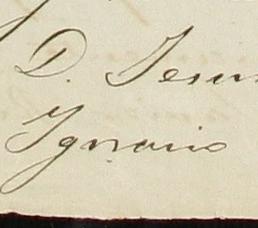 D. Jesus
Ygnacio